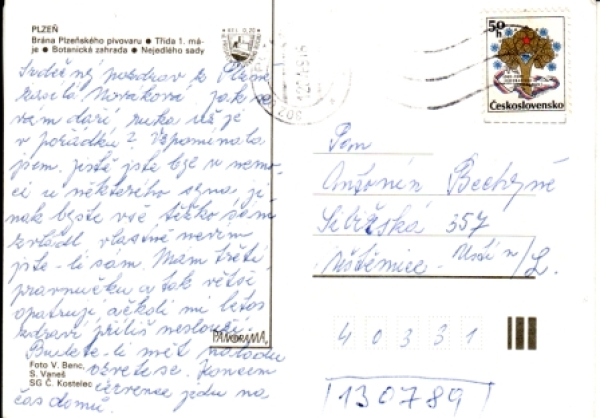 PLZEŇ
Brána Plzeňského pivovaru ● Třída 1. má-
je ● Botanická zahrada ● Nejedlého sady
Srdečný pozdrav z Plzně
Nováková jak se
vám daří ruka už je
v pořádku? Vzpomínala
jsem jistě jste byl v nemo-
ci u některého syna ji-
nak byste vše těžko sám
zvládl vlastně nevím
jste-li sám. Mám třetí
pravnučku a tak větši
opatruji ačkoli mi letos
zdraví příliš neslouží.
Budete-li mít náladu
ozvete se. Koncem
července jedu na
čas domů.
Foto V. Benc,
S. Vaneš
SG Č. Kostelec
PANORAMA
Kčs 0,20
50 h
Československo
Pan
Antonín Bechyně
357
Ústí n/L.
40331
130789